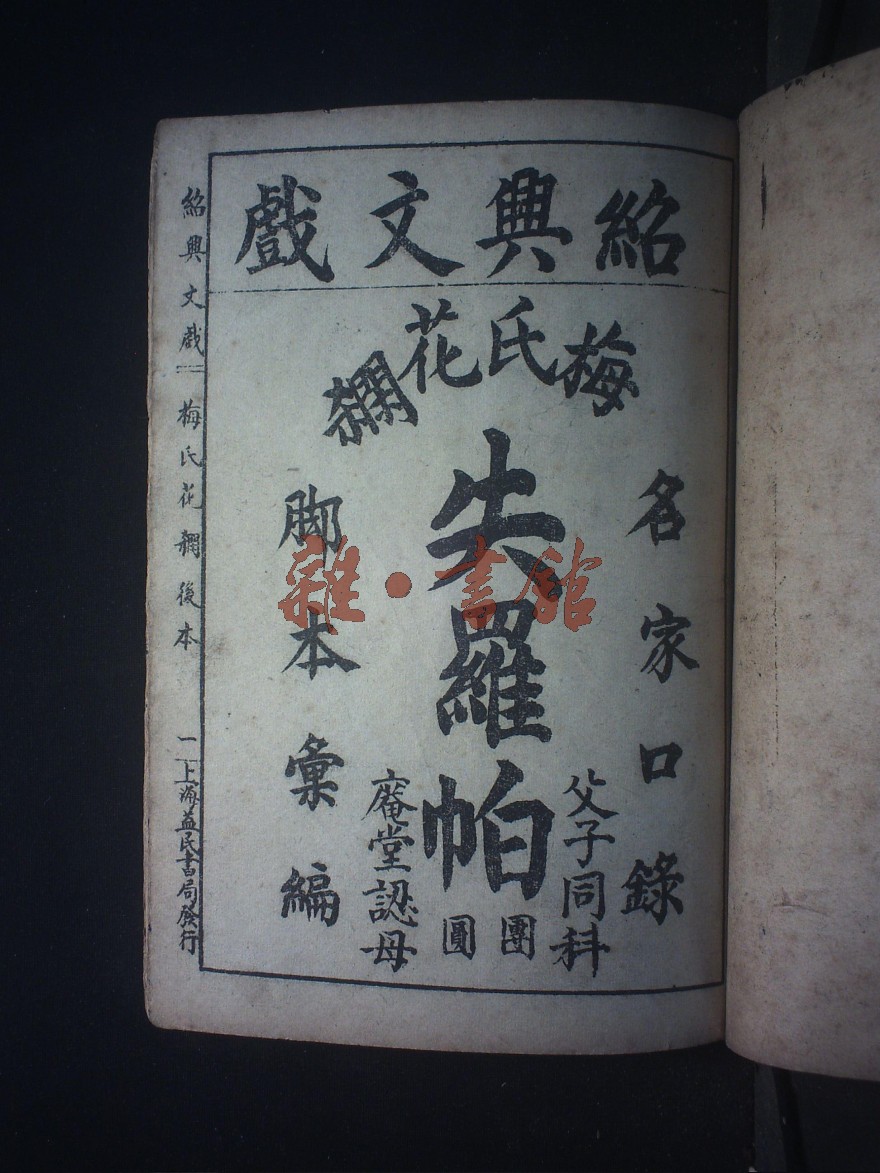 紹興文戲
梅氏花欄
名家口錄
父子同科
失羅帕
團圓
庵堂認母
脚本彙編
紹興文戲 梅氏花欄後本 一 上海益民書局發行
雜·書館